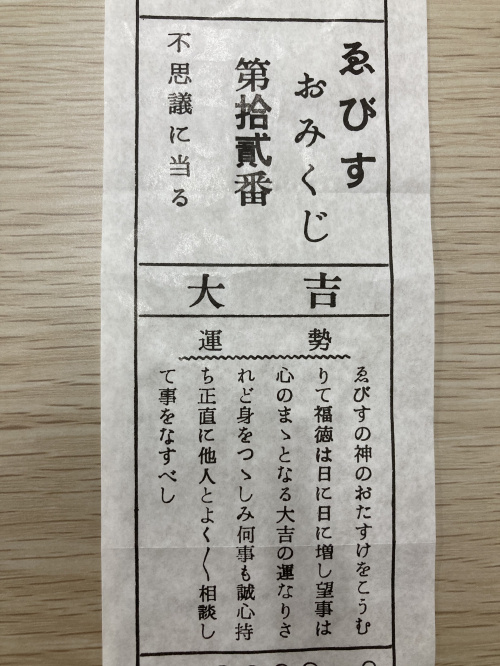 ゑびす
おみくじ
第拾貳番
不思議に当る
大吉
運勢
ゑびすの神のおたすけをこうむ
りて福徳は日に日に増し望事は
心のまゝとなる大吉の運なりさ
れど身をつゝしみ何事も誠心持
ち正直に他人とよく〱相談し
て事をなすべし